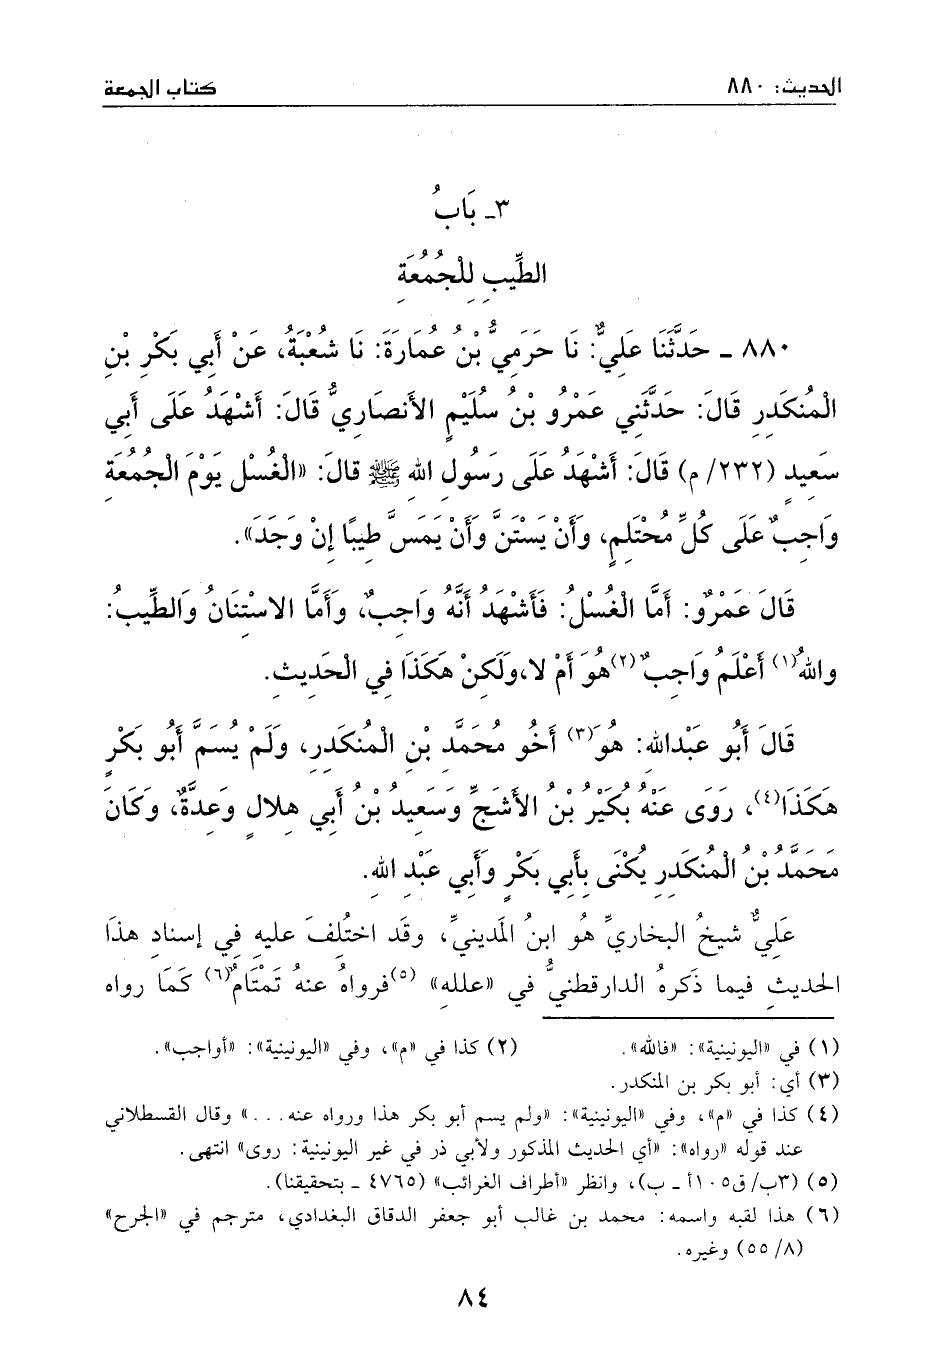 الحديث: ٨٨٠ كتاب الجمعة
٣ـ بَابُ
الطِّيبِ لِلْجُمُعَةِ
٨٨٠ ـ حَدَّثَنَا عَلِيٌّ: نَا حَرَمِيُّ بْنُ عُمَارَةَ: نَا شُعْبَةُ، عَنْ أَبِي بَكْرِ بْنِ
الْمُنكَدِرِ قَالَ: حَدَّثَنِي عَمْرُو بْنُ سُلَيْمٍ الأَنصَارِيُّ قَالَ: أَشْهَدُ عَلَى أَبِي
سَعِيدٍ (٢٣٢/ م) قَالَ: أَشْهَدُ عَلَى رَسُولِ اللهِ ﷺ قَالَ: «الْغُسْلُ يَوْمَ الْجُمُعَةِ
وَاجِبٌ عَلَى كُلِّ مُحْتَلِمٍ، وَأَنْ يَسْتَنَّ وَأَنْ يَمَسَّ طِيبًا إِنْ وَجَدَ».
قَالَ عَمْرٌو: أَمَّا الْغُسْلُ: فَأَشْهَدُ أَنَّهُ وَاجِبٌ، وَأَمَّا الاسْتِنَانُ وَالطِّيبُ:
واللهُ(١) أَعْلَمُ وَاجِبٌ(٢)هُوَ أَمْ لا،وَلَكِنْ هَكَذَا فِي الْحَدِيثِ.
قَالَ أَبُو عَبْدالله: هُوَ(٣) أَخُو مُحَمَّدِ بْنِ الْمُنكَدِرِ، وَلَمْ يُسَمَّ أَبُو بَكْرٍ
هَكَذَا(٤)، رَوَى عَنْهُ بُكَيْرُ بْنُ الأَشَجِّ وَسَعِيدُ بْنُ أَبِي هِلالٍ وَعِدَّةٌ، وَكَانَ
مَحَمَّدُ بْنُ الْمُنكَدِرِ يُكْنَى بِأَبِي بَكْرٍ وَأَبِي عَبْدِ اللهِ.
عَلِيٌّ شيخُ البخاريِّ هُو ابنُ المَدينيِّ، وقَد اختُلِفَ عليهِ فِي إسنادِ هذَا
الحديثِ فيما ذَكرهُ الدارقطنيُّ في «علله» (٥)فرواهُ عنهُ تَمْتَامٌ(٦) كَمَا رواه
(١) في «اليونينية»: «فالله». (٢) كذا في «م»، وفي «اليونينية»: «أواجب».
(٣) أي: أبو بكر بن المنكدر.
(٤) كذا في «م»، وفي «اليونينية»: «ولم يسم أبو بكر هذا ورواه عنه...» وقال القسطلاني
عند قوله «رواه»: «أي الحديث المذكور ولأبي ذر في غير اليونينية: روى» انتهى.
(٥) (٣ب/ ق١٠٥أ ـ ب)، وانظر «أطراف الغرائب» (٤٧٦٥ ـ بتحقيقنا).
(٦) هذا لقبه واسمه: محمد بن غالب أبو جعفر الدقاق البغدادي، مترجم في «الجرح»
(٨/ ٥٥) وغيره.
٨٤